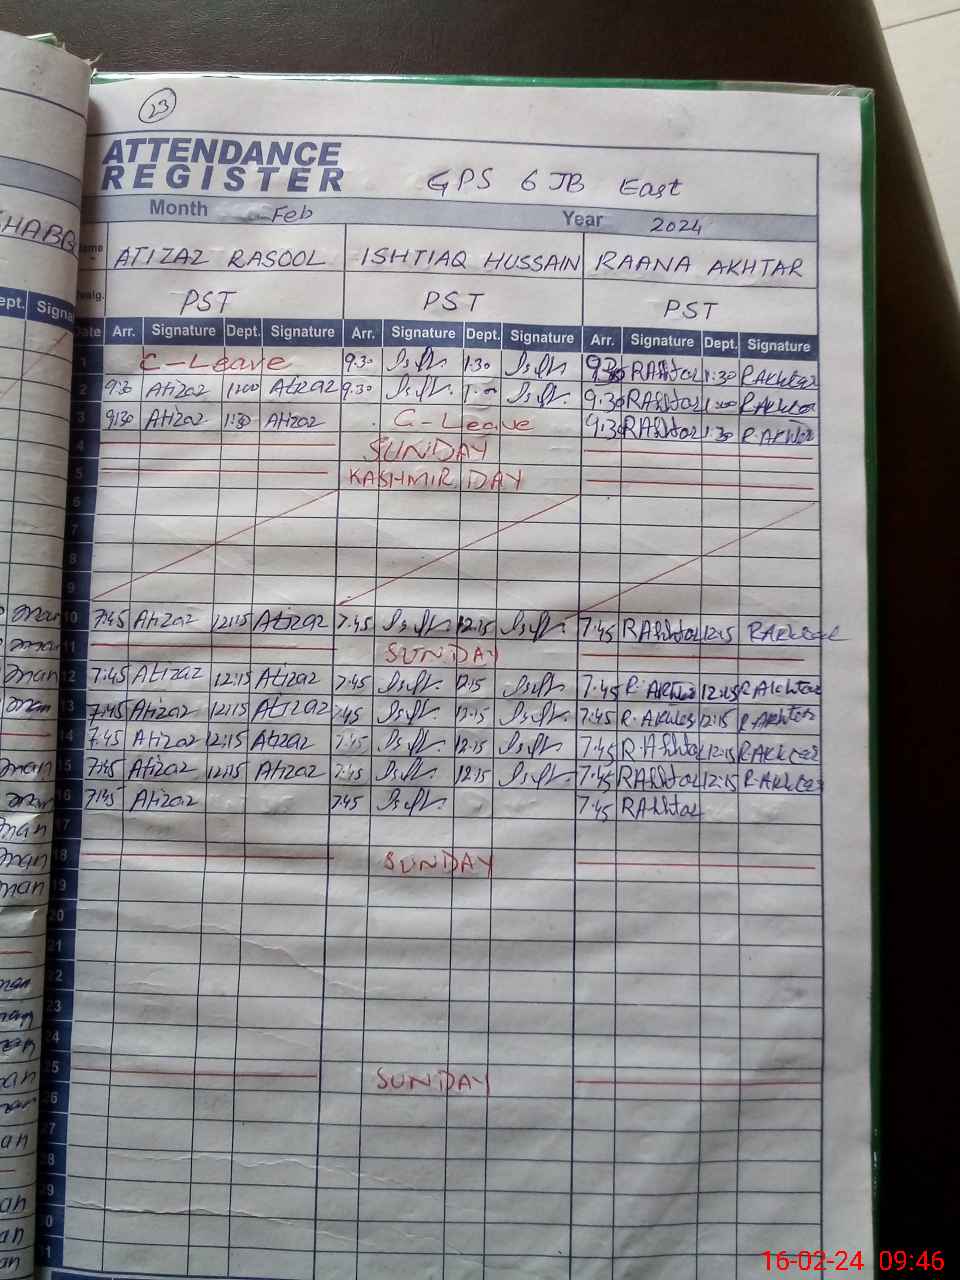 23
ATTENDANCE
REGISTER
GPS 6 JB East
Month Feb Year 2024
ATIZAZ RASOOL ISHTIAQ HUSSAIN RAANA AKHTAR
PST PST PST
Date Arr. Signature Dept. Signature Arr. Signature Dept. Signature Arr. Signature Dept. Signature
1 C-Leave 9.30 1:30 9:30 RAkhtar 1:30 RAkhtar
2 9:30 Atizaz 1:00 Atizaz 9.30 9:30 RAkhtar RAkhtar
3 9:30 Atizaz 1:30 Atizaz C-Leave 9:30 RAkhtar 1:30 R.Akhtar
4 SUNDAY
5 KASHMIR DAY
6
7
8
9
10 7:45 Atizaz 12:15 Atizaz 7.45 12:15 7.45 RAkhtar 12:15 RAkhtar
11 SUNDAY
12 7:45 Atizaz 12:15 Atizaz 7:45 12:15 7.45 R.Akhtar 12:15 RAkhtar
13 7:45 Atizaz 12:15 Atizaz 7:45 12:15 7:45 R.Akhtar 12:15 RAkhtar
14 7:45 Atizaz 12:15 Atizaz 7:45 12:15 7:45 R.Akhtar 12:15 RAkhtar
15 7:45 Atizaz 12:15 Atizaz 7:45 12:15 7:45 RAkhtar 12:15 R.Akhtar
16 7:45 Atizaz 7:45 7:45 RAkhtar
17
18 SUNDAY
19
20
21
22
23
24
25 SUNDAY
26
27
28
29
30
31
16-02-24 09:46